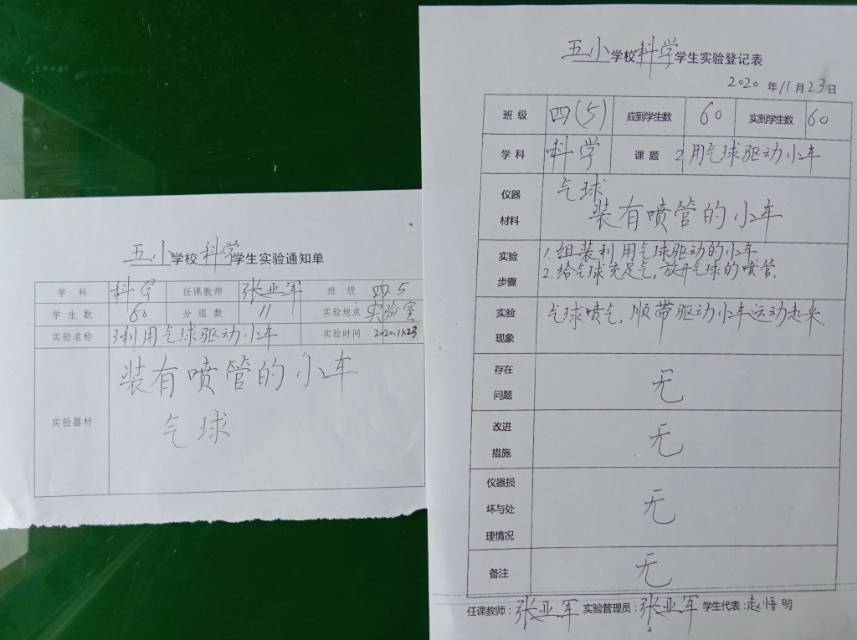 五小学校科学学生实验通知单
学科 科学 任课教师 张亚军 班级 四.5
学生数 60 分组数 11 实验地点 实验室
实验名称 利用气球驱动小车 实验时间 2020.11.23
实验器材 装有喷管的小车
气球
五小学校科学学生实验登记表
2020年11月23日
班级 四(5) 应到学生数 60 实到学生数 60
学科 科学 课题 2用气球驱动小车
仪器材料 气球
装有喷管的小车
实验步骤 1.组装利用气球驱动的小车
2.给气球充足气,放开气球的喷管.
实验现象 气球喷气,顺带驱动小车运动起来
存在问题 无
改进措施 无
仪器损坏与处理情况 无
备注 无
任课教师:张亚军 实验管理员:张亚军 学生代表:赵悟明